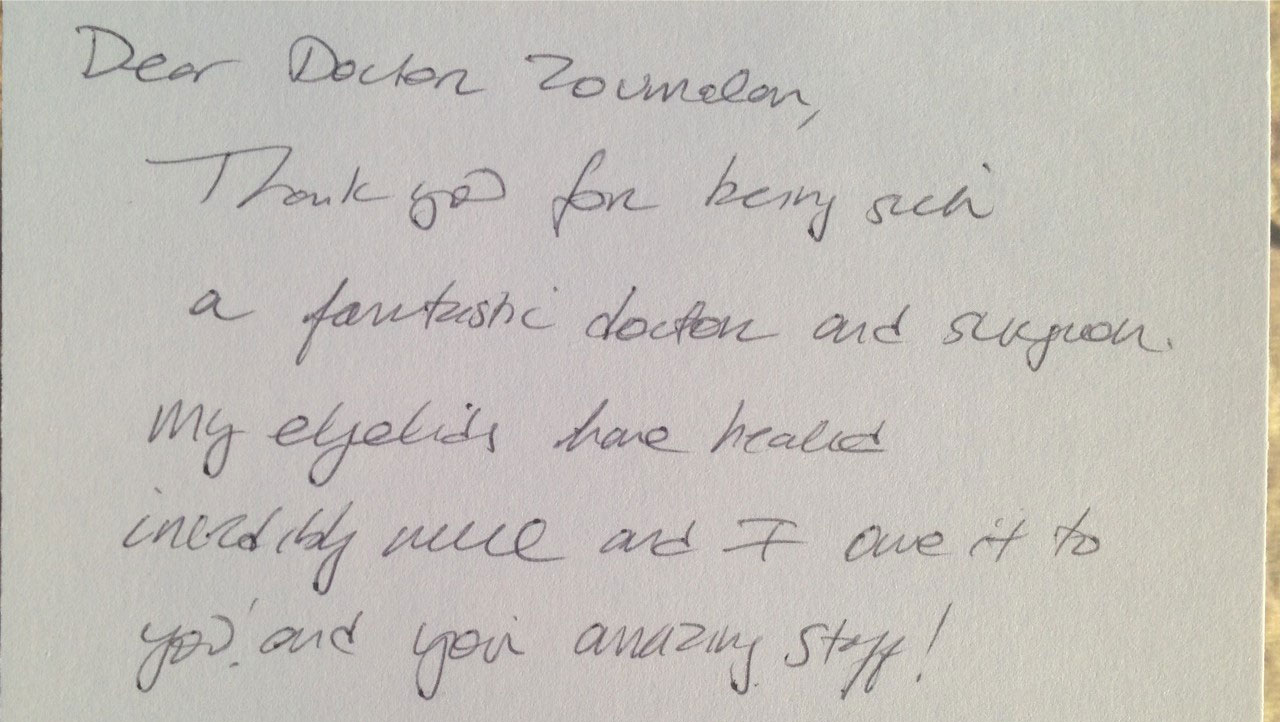 Dear Doctor Zoumalan,
Thank you for being such
a fantastic doctor and surgeon.
My eyelids have healed
incredibly well and I owe it to
you! and your amazing staff!